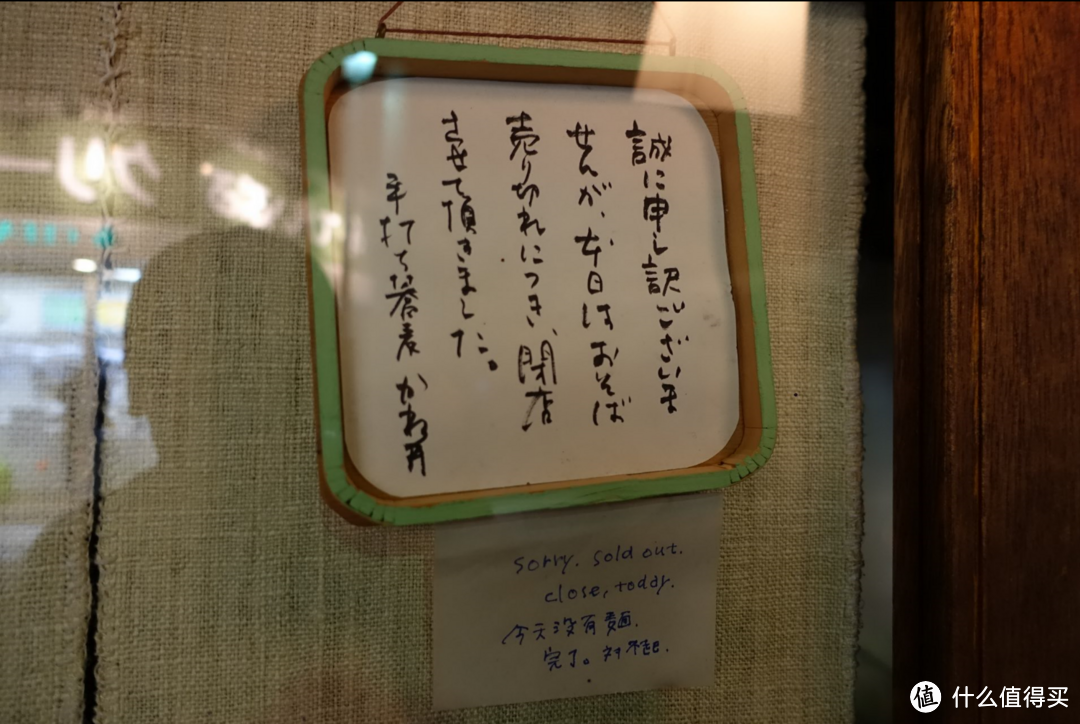 誠に申し訳ございま
せんが、本日はおそば
売り切れにつき、閉店
させて頂きました。
手打ち蕎麦 かね井
sorry. sold out.
close, today.
今天没有麺.
完了。対不起.
值 什么值得买